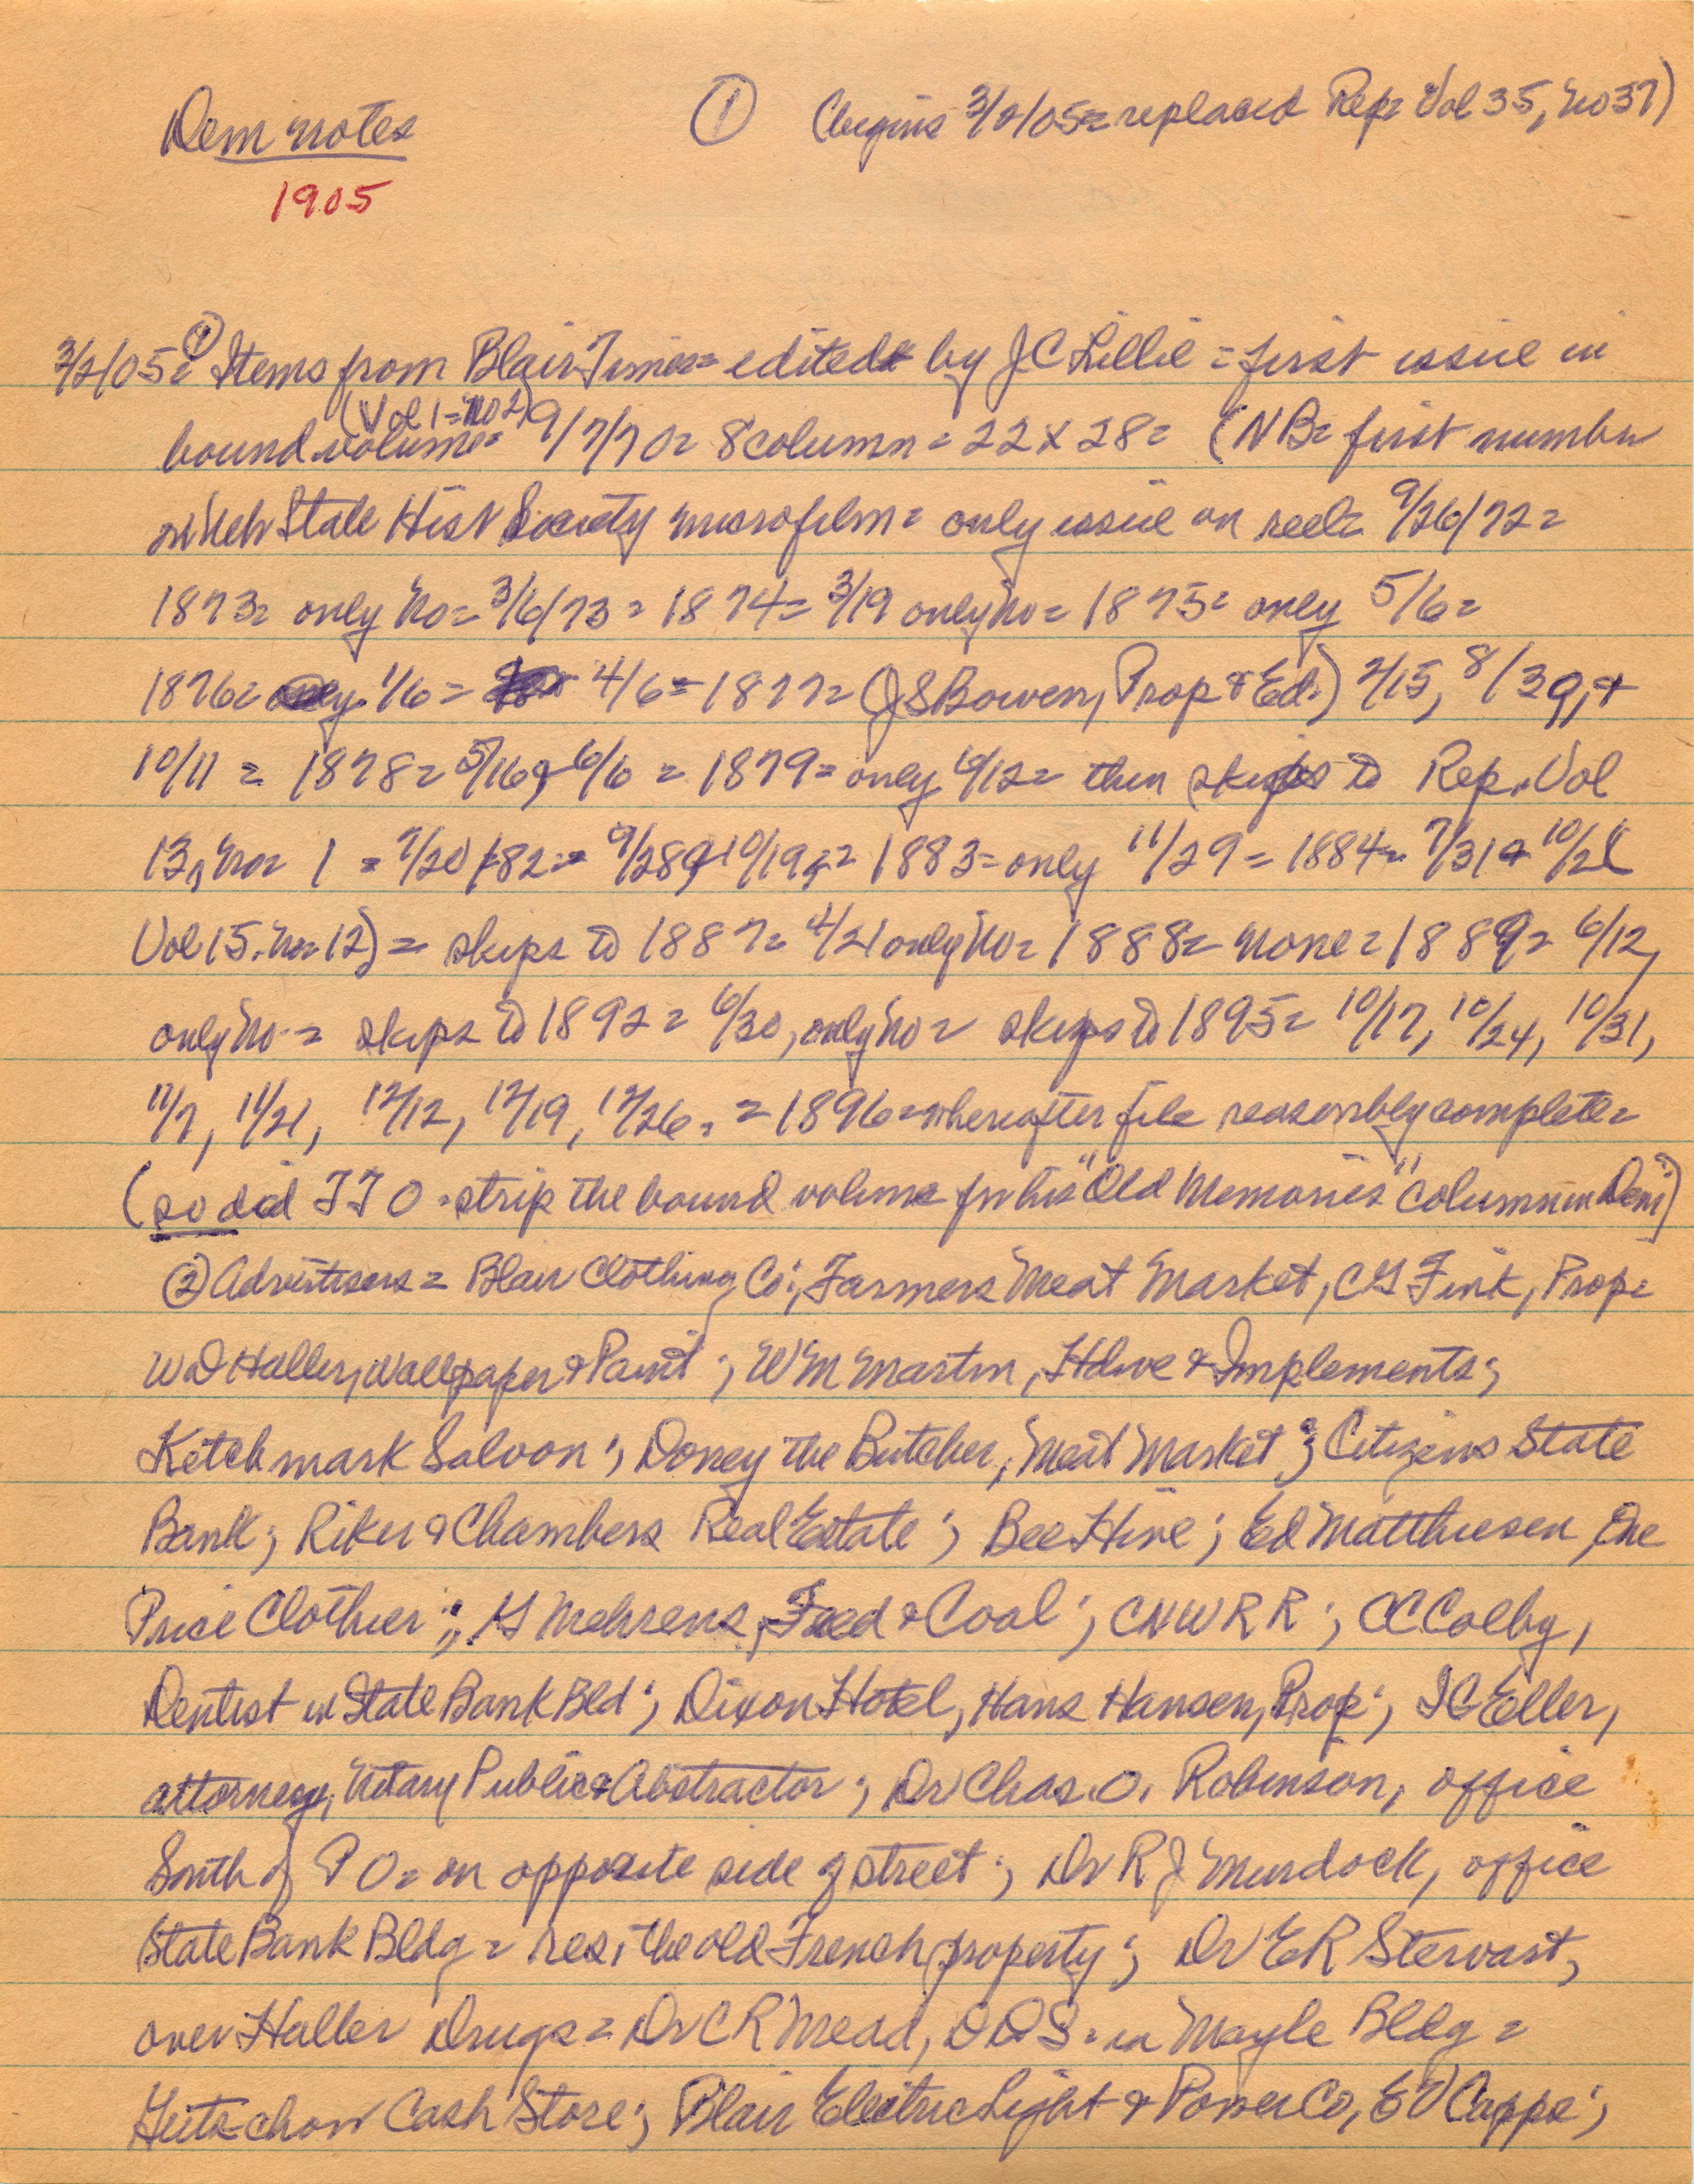 Dem notes
1905
①
(begins 3/2/05 = replaced Rep = Vol 35, No 37)
3/2/05 = ① Items from Blair Times = edited by J C Lillie = first issue in
(Vol 1 = No 2)
bound volume = 9/7/70 = 8 column = 22 x 28 = (NB = first number
on Neb State Hist Society microfilm = only issue on reel = 9/26/72 =
1873 = only No = 3/6/73 = 1874 = 3/19 only No = 1875 = only 5/6 =
1876 = 1/6 = 4/6 = 1877 = (J S Bowen, Prop & Ed.) 2/15, 8/39, &
10/11 = 1878 = 5/16 & 6/6 = 1879 = only 6/12 = then skips to Rep. Vol
13, No = 1 = 7/20/82 = 9/28 & 10/19 = 1883 = only 11/29 = 1884 = 7/31 & 10/2 (
Vol 15. No = 12) = skips to 1887 = 4/21 only No = 1888 = none = 1889 = 6/12,
only No = skips to 1892 = 6/30, only No = skips to 1895 = 10/17, 10/24, 10/31,
11/7, 11/21, 12/12, 12/19, 12/26. = 1896 = thereafter file reasonbly complete =
(so did T T O = strip the bound volume for his "Old Memories" column in Dem?)
② Advertisers = Blair Clothing Co; Farmers Meat Market, C G Fink, Prop =
W D Haller, Wallpaper & Paint; W M Martin, Hdwe & Implements;
Ketchmark Saloon; Doney the Butcher, Meat Market; Citizens State
Bank; Riker & Chambers Real Estate; Bee Hive; Ed Matthiesen, One
Price Clothier; G Mehrens, Feed & Coal; CNW R R; C C Colby,
Dentist in State Bank Bld; Dixon Hotel, Hans Hansen, Prop; I C Eller,
attorney, Notary Public & Abstractor; Dr Chas. O. Robinson, office
South of P O = on opposite side of street; Dr R J Murdock, office
State Bank Bldg = res, the old French property; Dr E R Stewart,
over Haller Drugs = Dr C R Mead, D D S = in Maple Bldg =
Gutschow Cash Store; Blair Electric Light & Power Co, E V Capps;